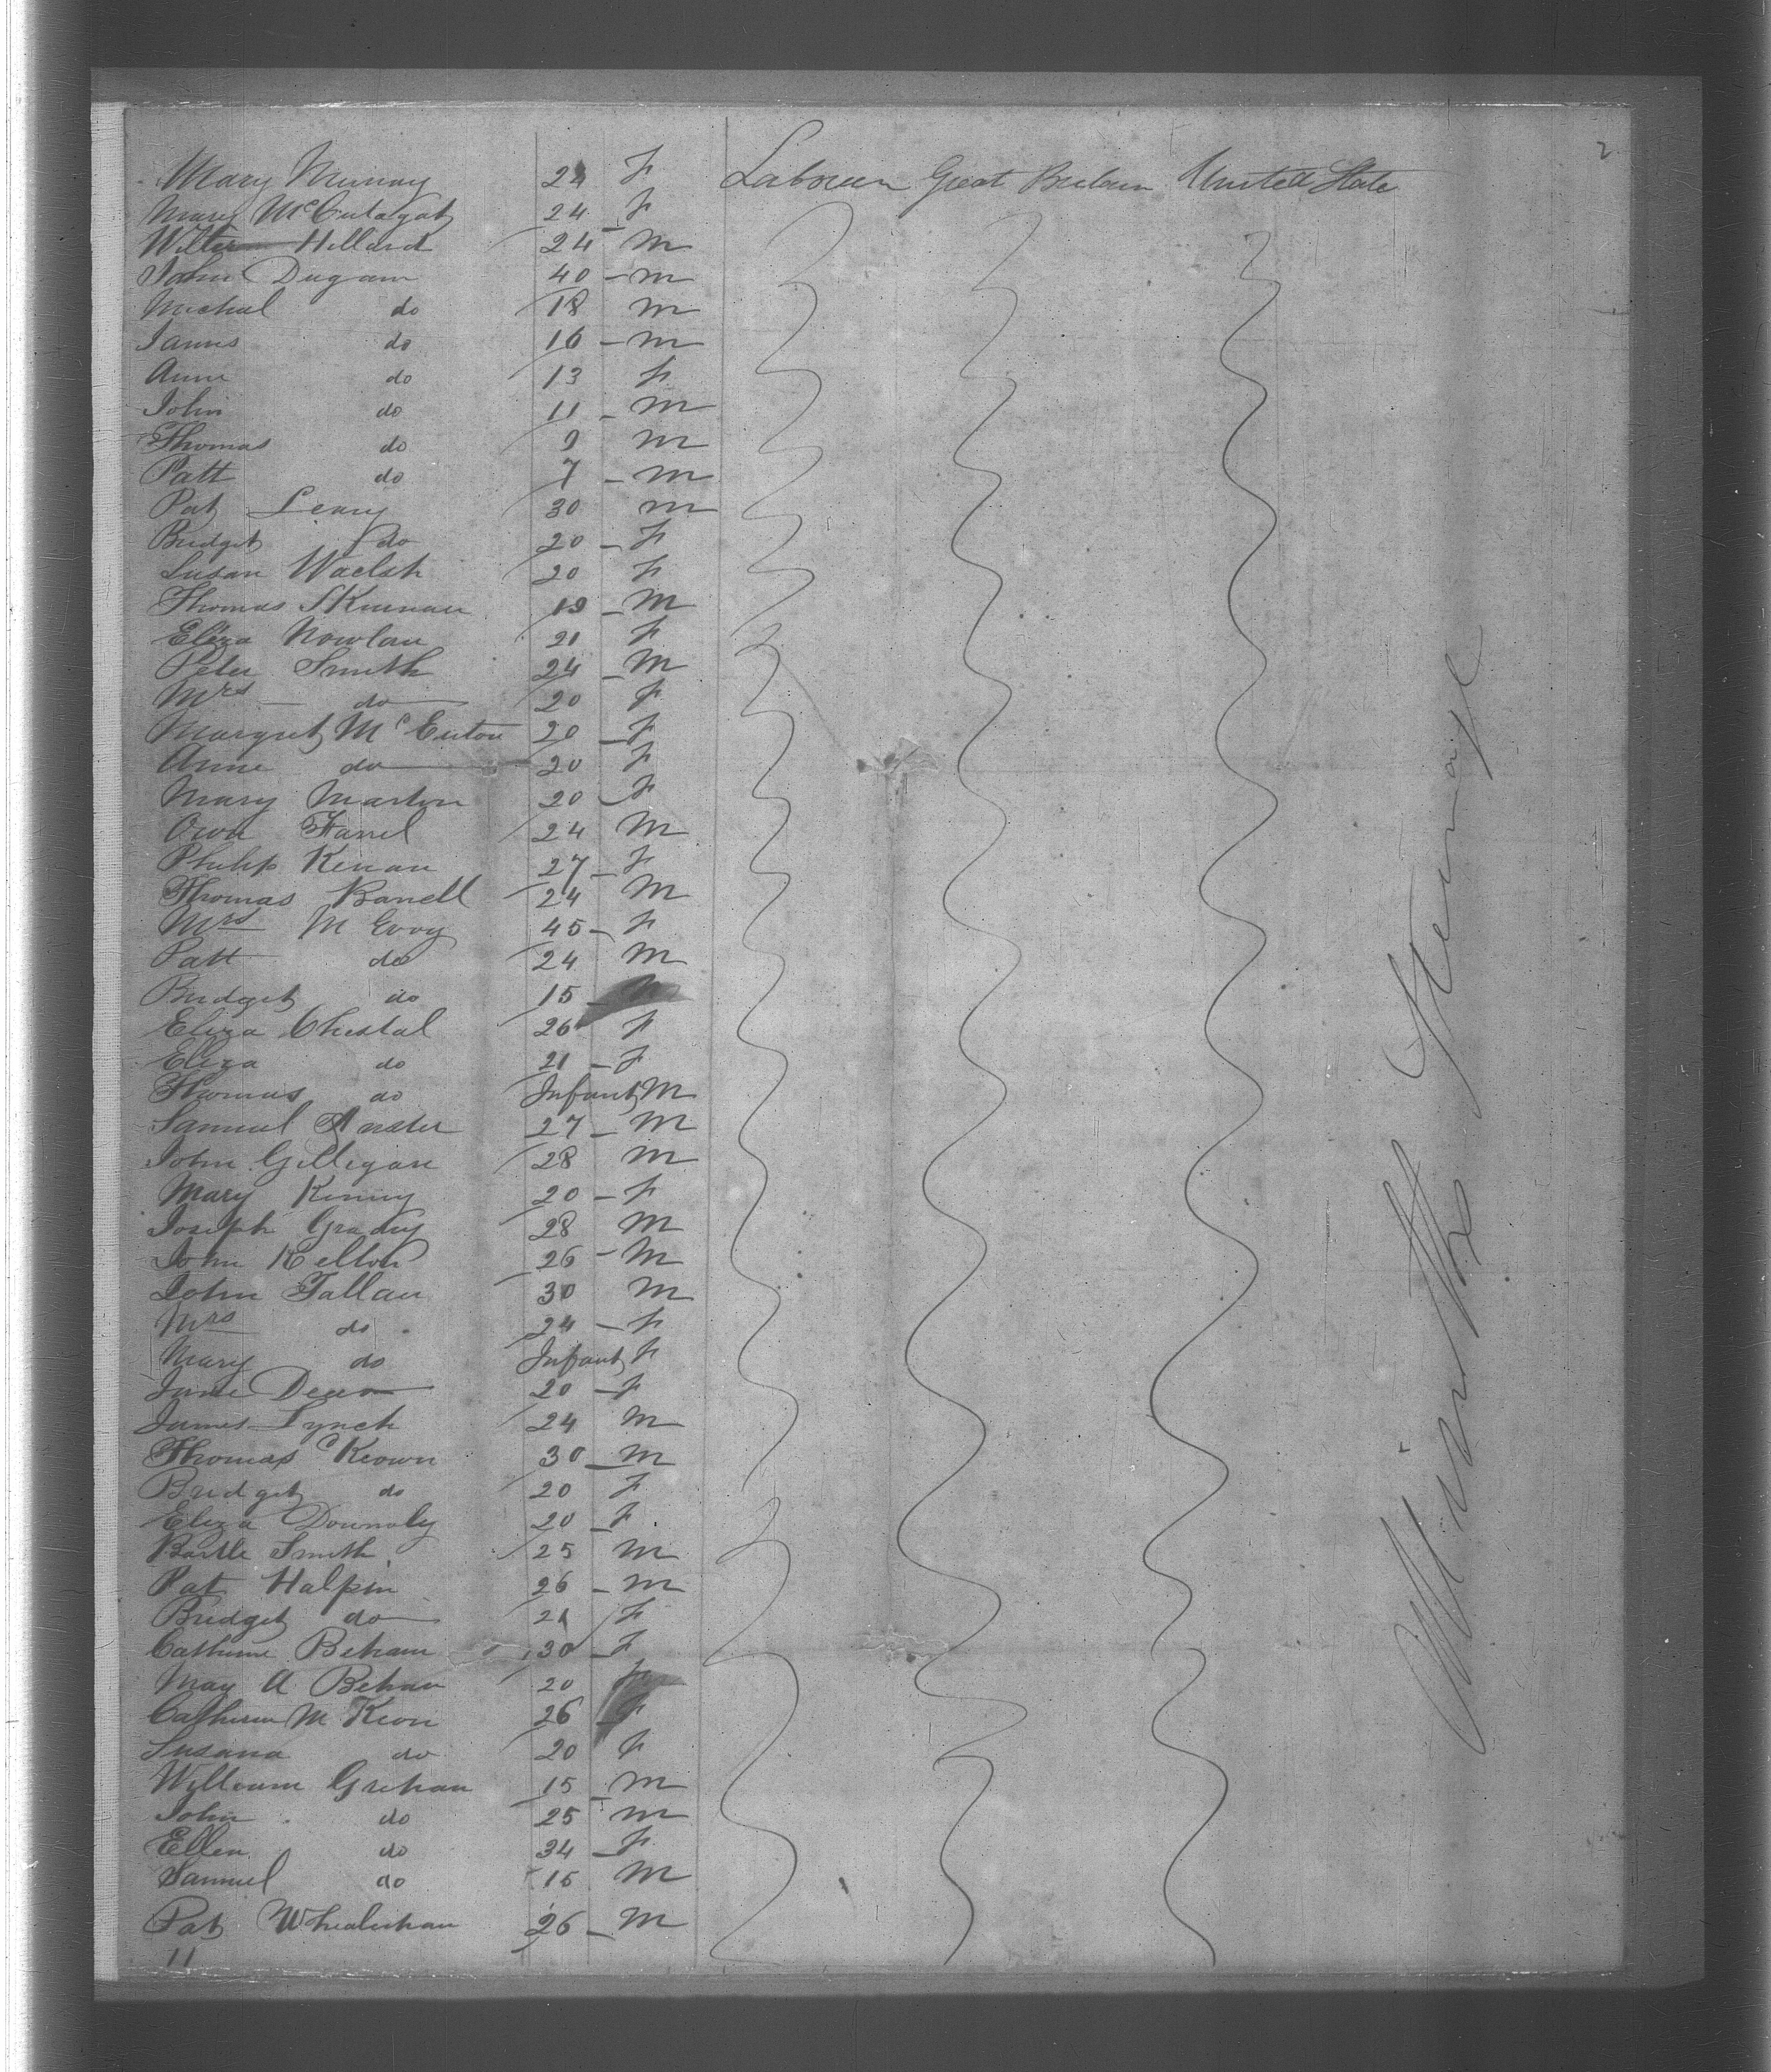 2
Mary Murray 24 F Labourer Great Britain United State
Mary McCutagat 24 F
Hillard 24 M
John Dugan 40 M
Michal do 18 M
James do 16 M
Anne do 13 F
John do 11 M
Thomas do 9 M
Patt do 7 M
Pat Leary 30 M
Bridget do 20 F
Susan Waelsh 20 F
Thomas 19 M
Eliza Nowlan 21 F
Peter Smith 24 M
Mrs do 20 F
Margret McEnton 20 F
Anne do 20 F
Mary Martin 20 F
Own Farrel 24 M
Philip Kenan 27 F
Thomas Kanell 24 M
Mrs M Evoy 45 F
Patt do 24 M
Bridget do 15
Eliza Chestal 26 F
Eliza do 21 F
Thomas do Infant M
Samuel 27 M
John Gilligan 28 M
Mary Kenny 20 F
Joseph Grady 28 M
John Kelton 26 M
John Fallan 30 M
Mrs do 24 F
Mary do Infant F
Jane 20 F
James Lynch 24 M
Thomas cKeown 30 M
Bridget do 20 F
Eliza Dounoly 20 F
Bartle Smith 25 M
Pat Halpin 26 M
Bridget do 21 F
Catherine Beham 30 F
May A Behan 20 F
Catheren M Keon 26 F
Susana do 20 F
William Grehan 15 M
John do 25 M
Ellen do 34 F
Samuel do 15 M
Pat Whealehan 26 M
11
Steerage